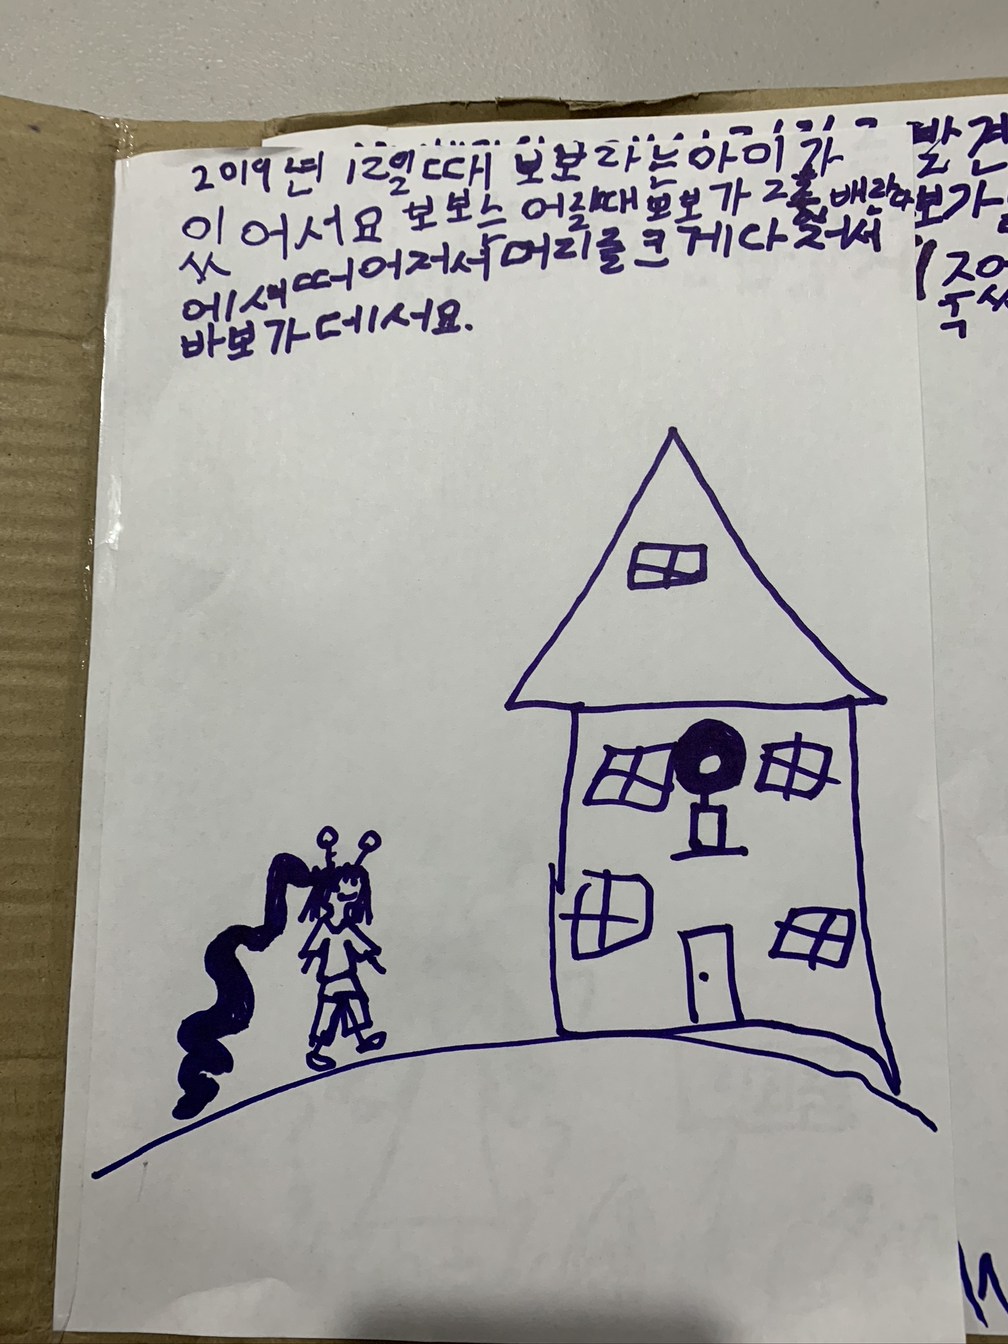 2019년 12월 때 보보라는 아이가
있 어서요 보보는 어릴때 보보가 2층 배란다
에서 떠어저서 머리를 크 게 다 처서
바보가 데서요.
발견
보가
주어